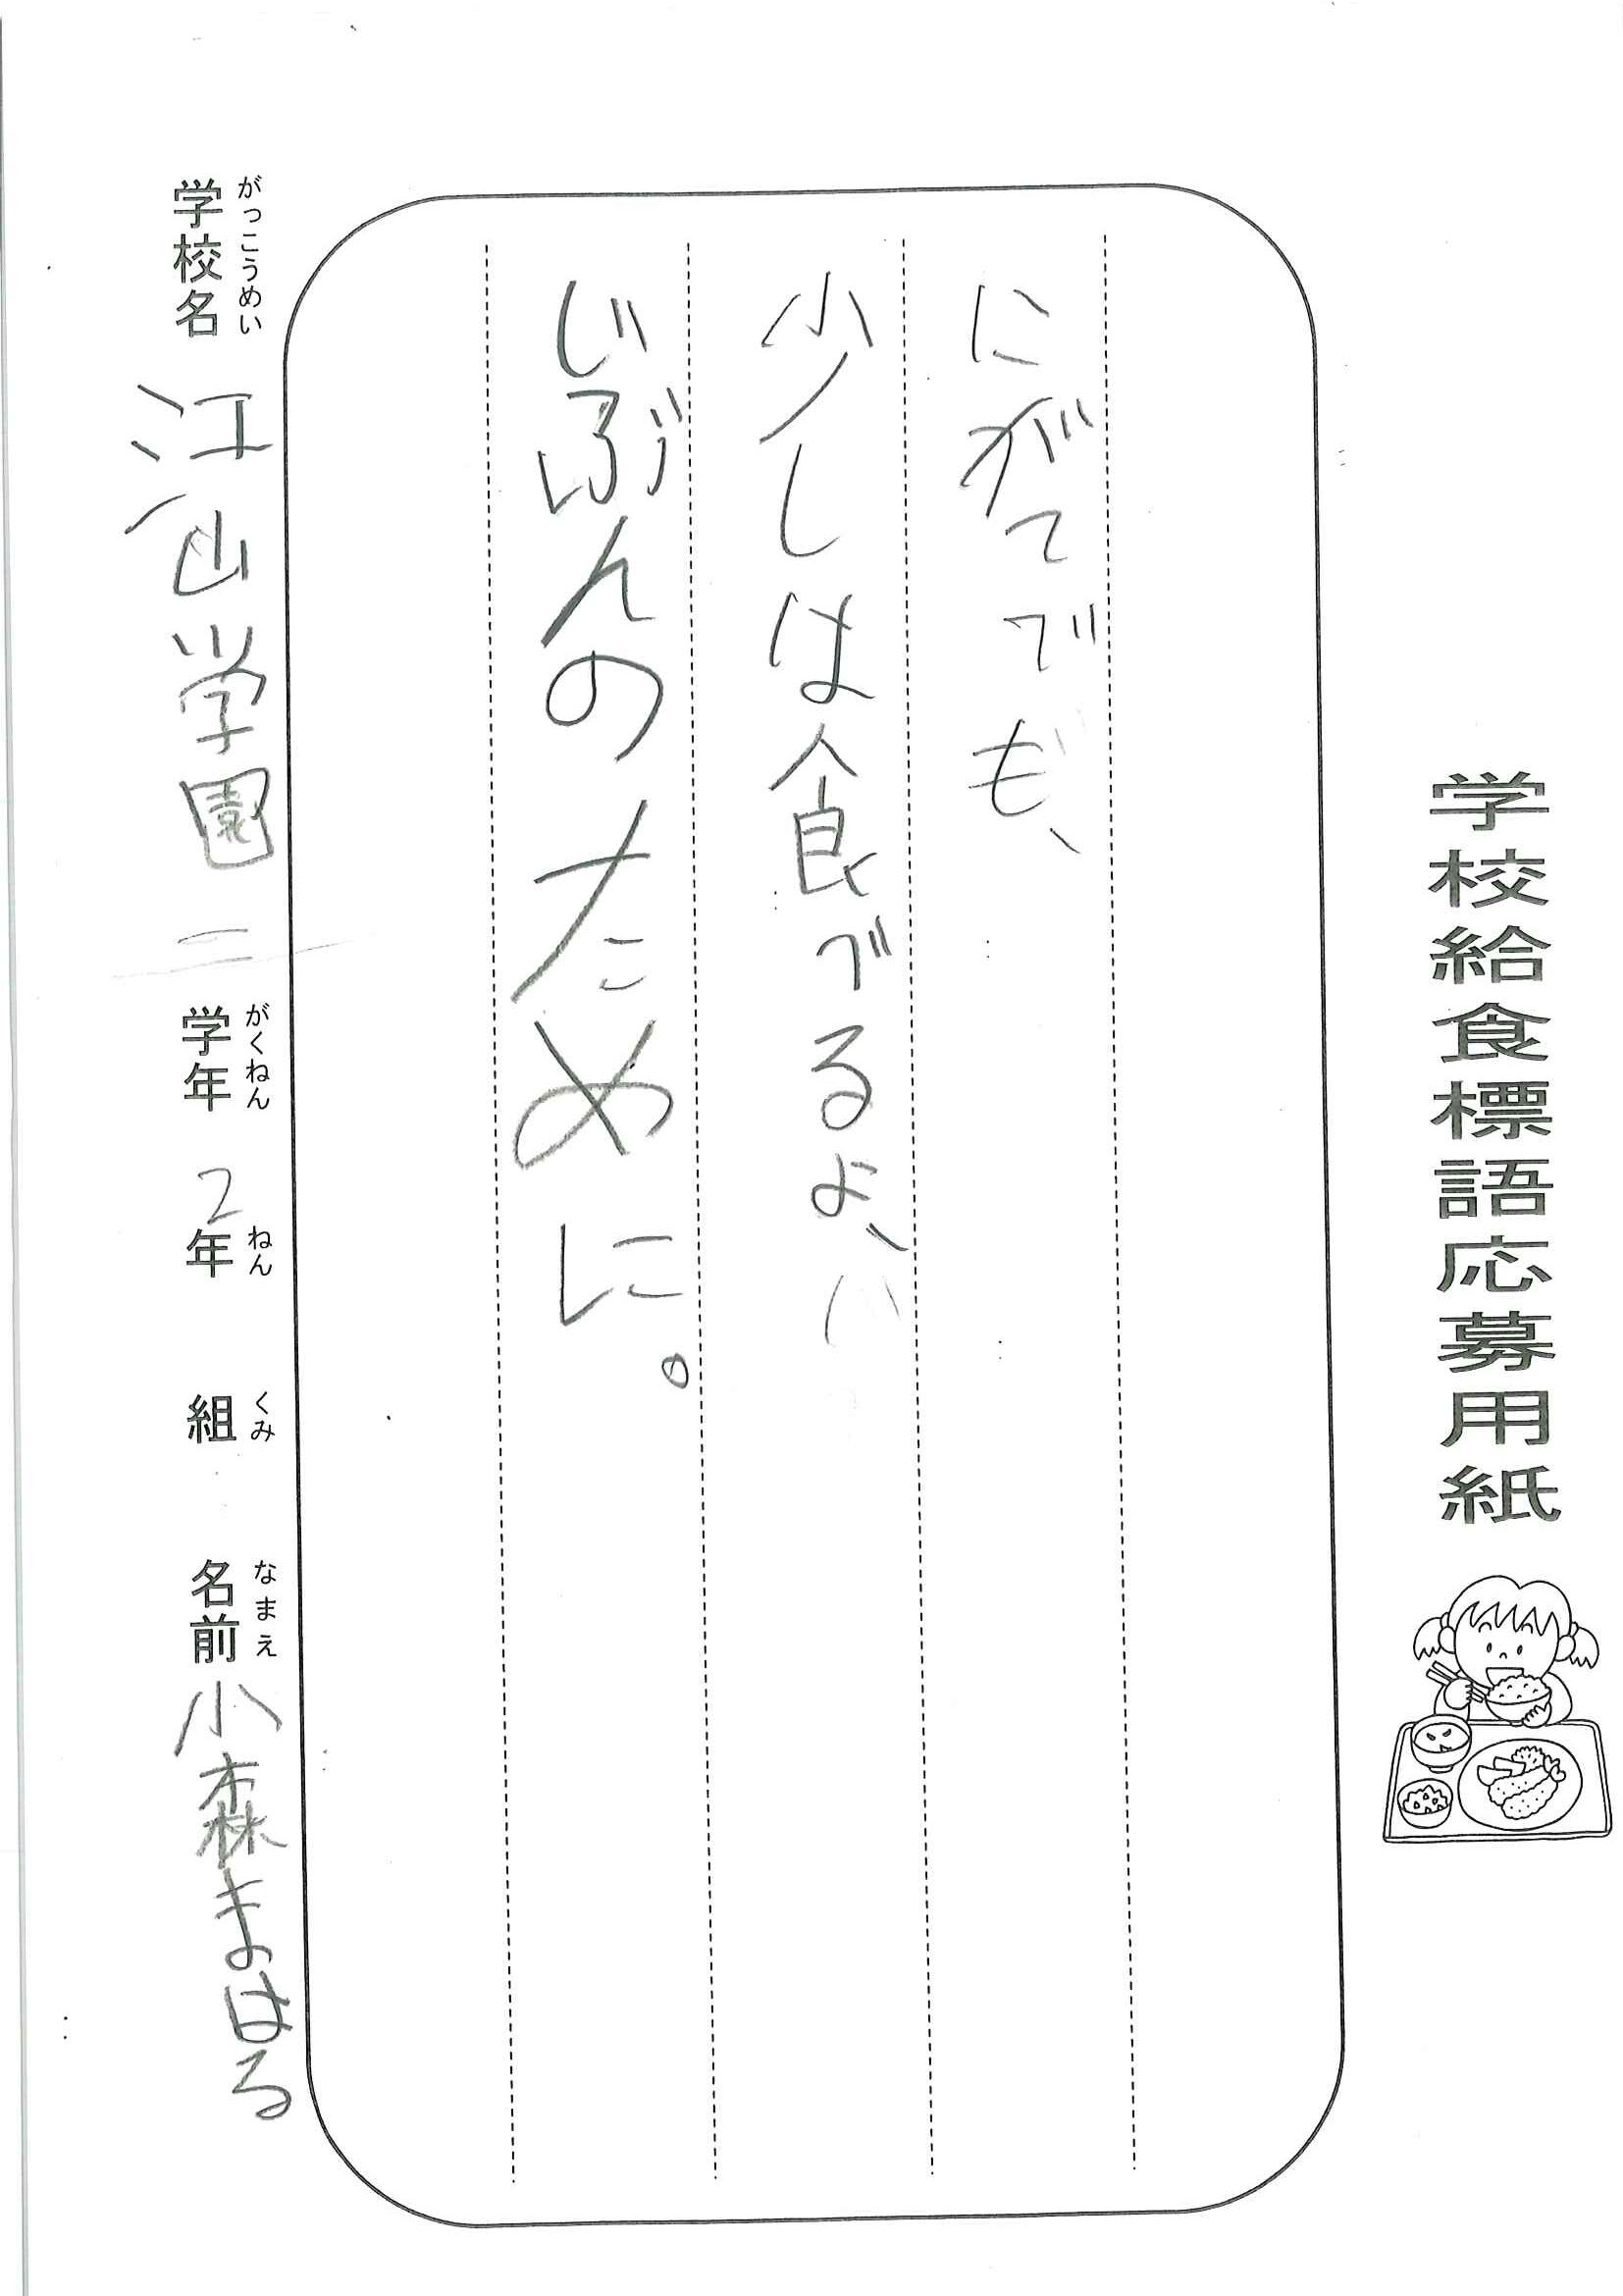 学校給食標語応募用紙
にがてでも、
少しは食べるよ、
じぶんのために。
がっこうめい
学校名 江山学園
がくねん
学年
ねん
2年
くみ
組
なまえ
名前 小森まはる